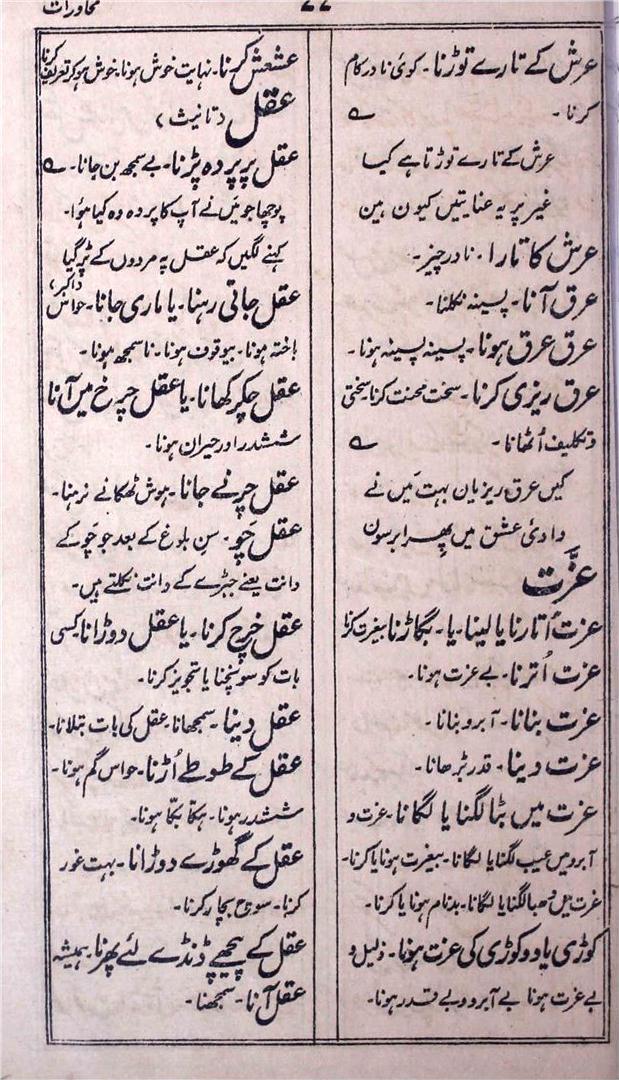 محاورات
۷۷
عرش کے تارے توڑنا۔ کوئی نادر کام
کرنا۔ ے
عرش کے تارے توڑتا ہے کیا
غیر پر یہ عنایتیں کیون ہین
عرش کا تارا۔ نادر چیز۔
عرق آنا۔ پسینہ نکلنا۔
عرق عرق ہونا۔ پسینہ پسینہ ہونا۔
عرق ریزی کرنا۔ سخت محنت کرنا سختی
و تکلیف اُٹھانا۔ ے
کیں عرق ریزیان بہت مَیں نے
وادئ عشق میں پھرا برسون
عزّت
عزت اُتارنا یا لینا۔ یا۔ بگاڑنا بیغرت کرنا
عزت اُترنا۔ بے عزت ہونا۔
عزت بنانا۔ آبرو بنانا۔
عزت دینا۔ قدر بڑھانا۔
عزت میں بٹا لگنا یا لگانا۔ عزت و
آبرو میں عیب لگنا یا لگانا۔ بیغرت ہونا یا کرنا۔
عزت میں دھبا لگنا یا لگانا۔ بدنام ہونا یا کرنا۔
کوڑی یا دو کوڑی کی عزت ہونا۔ ذلیل و
بے عزت ہونا بے آبرو و بے قدر ہونا۔
عشعش کرنا۔ نہایت خوش ہونا۔ خوش ہوکر تعریف کرنا
عقل (تانیث)
عقل پر پردہ پڑنا۔ بے سمجھ بن جانا۔ ے
پوچھا جو میں نے آپ کا پردہ وہ کیا ہوُا۔
کہنے لگیں کہ عقل پہ مردوں کے پڑ گیا
(اکبر)
عقل جاتی رہنا۔ یا ماری جانا۔ حواس
باختہ ہونا۔ بیوقوف ہونا۔ ناسمجھ ہونا۔
عقل چکر کھانا۔ یا عقل چرخ میں آنا
ششدر اور حیران ہونا۔
عقل چرنے جانا۔ ہوش ٹھکانے نرہنا۔
عقل چَو۔ سن بلوغ کے بعد جو چَو کے
دانت یعنے جبڑے کے دانت نکلتے ہیں۔
عقل خرچ کرنا۔ یا عقل دوڑانا کسی
بات کو سونچنا یا تجویز کرنا۔
عقل دینا۔ سمجھانا۔ عقل کی بات بتلانا۔
عقل کے طوطے اُڑنا۔ حواس گم ہونا۔
ششدر ہونا۔ ہکّا بکّا ہونا۔
عقل کے گھوڑے دوڑانا۔ بہت غور
کرنا۔ سوچ بچار کرنا۔
عقل کے پیچھے ڈنڈے لئے پھرنا۔ ہمیشہ
عقل آنا۔ سمجھنا۔